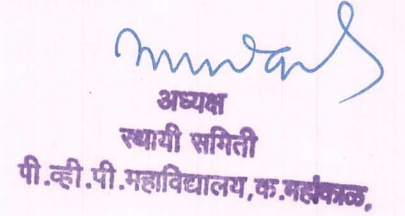 अध्यक्ष
स्थायी समिती
पी.व्ही.पी.महाविद्यालय,क.महांकाळ.